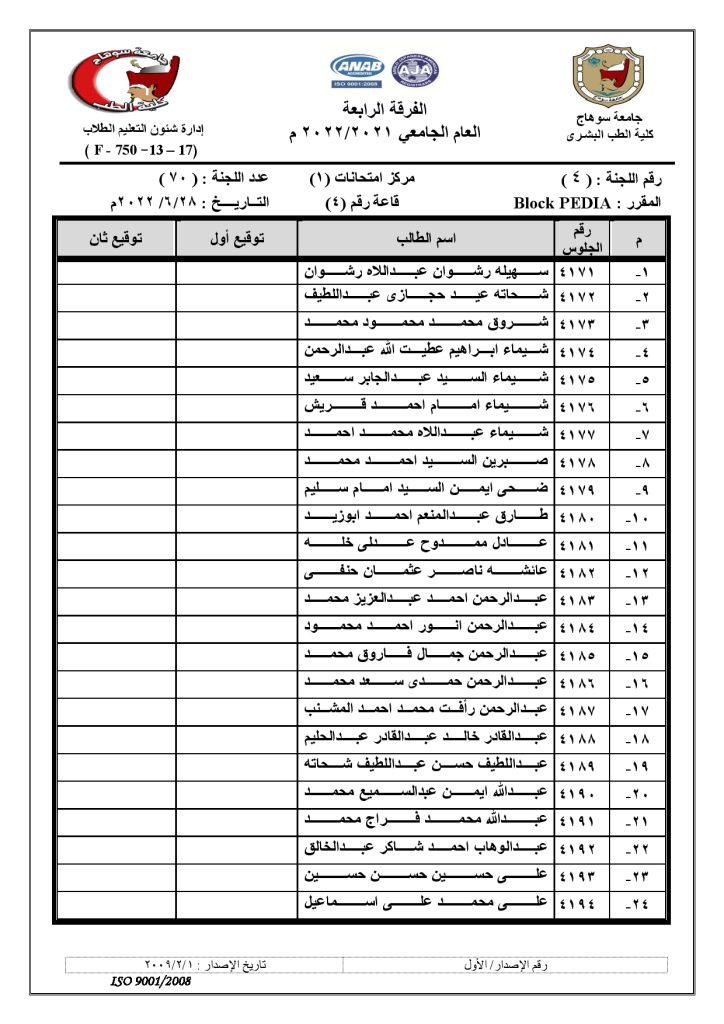 جامعة سوهاج
كلية الطب البشرى
ANAB
ACCREDITED
ISO 9001:2008
AJA
الفرقة الرابعة
العام الجامعي ٢٠٢٢/٢٠٢١ م
جامعة سوهاج
كلية الطب
إدارة شئون التعليم الطلاب
( F - 750 –13 – 17)
رقم اللجنة : ( ٤ ) مركز امتحانات (١) عدد اللجنة : ( ٧٠ )
المقرر : Block PEDIA قاعة رقم (٤) التــاريــخ : ٢٨/ ٦ /٢٠٢٢م
م رقم الجلوس اسم الطالب توقيع أول توقيع ثان
١- ٤١٧١ سهيله رشوان عبداللاه رشوان
٢- ٤١٧٢ شحاته عيد حجازى عبداللطيف
٣- ٤١٧٣ شروق محمد محمود محمد
٤- ٤١٧٤ شيماء ابراهيم عطيت الله عبدالرحمن
٥- ٤١٧٥ شيماء السيد عبدالجابر سعيد
٦- ٤١٧٦ شيماء امام احمد قريش
٧- ٤١٧٧ شيماء عبداللاه محمد احمد
٨- ٤١٧٨ صبرين السيد احمد محمد
٩- ٤١٧٩ ضحى ايمن السيد امام سليم
١٠- ٤١٨٠ طارق عبدالمنعم احمد ابوزيد
١١- ٤١٨١ عادل ممدوح عدلى خله
١٢- ٤١٨٢ عائشه ناصر عثمان حنفى
١٣- ٤١٨٣ عبدالرحمن احمد عبدالعزيز محمد
١٤- ٤١٨٤ عبدالرحمن انور احمد محمود
١٥- ٤١٨٥ عبدالرحمن جمال فاروق محمد
١٦- ٤١٨٦ عبدالرحمن حمدى سعد محمد
١٧- ٤١٨٧ عبدالرحمن رأفت محمد احمد المشنب
١٨- ٤١٨٨ عبدالقادر خالد عبدالقادر عبدالحليم
١٩- ٤١٨٩ عبداللطيف حسن عبداللطيف شحاته
٢٠- ٤١٩٠ عبدالله ايمن عبدالسميع محمد
٢١- ٤١٩١ عبدالله محمد فراج محمد
٢٢- ٤١٩٢ عبدالوهاب احمد شاكر عبدالخالق
٢٣- ٤١٩٣ على حسين حسن حسين
٢٤- ٤١٩٤ على محمد على اسماعيل
رقم الإصدار/ الأول تاريخ الإصدار : ٢٠٠٩/٢/١
ISO 9001/2008